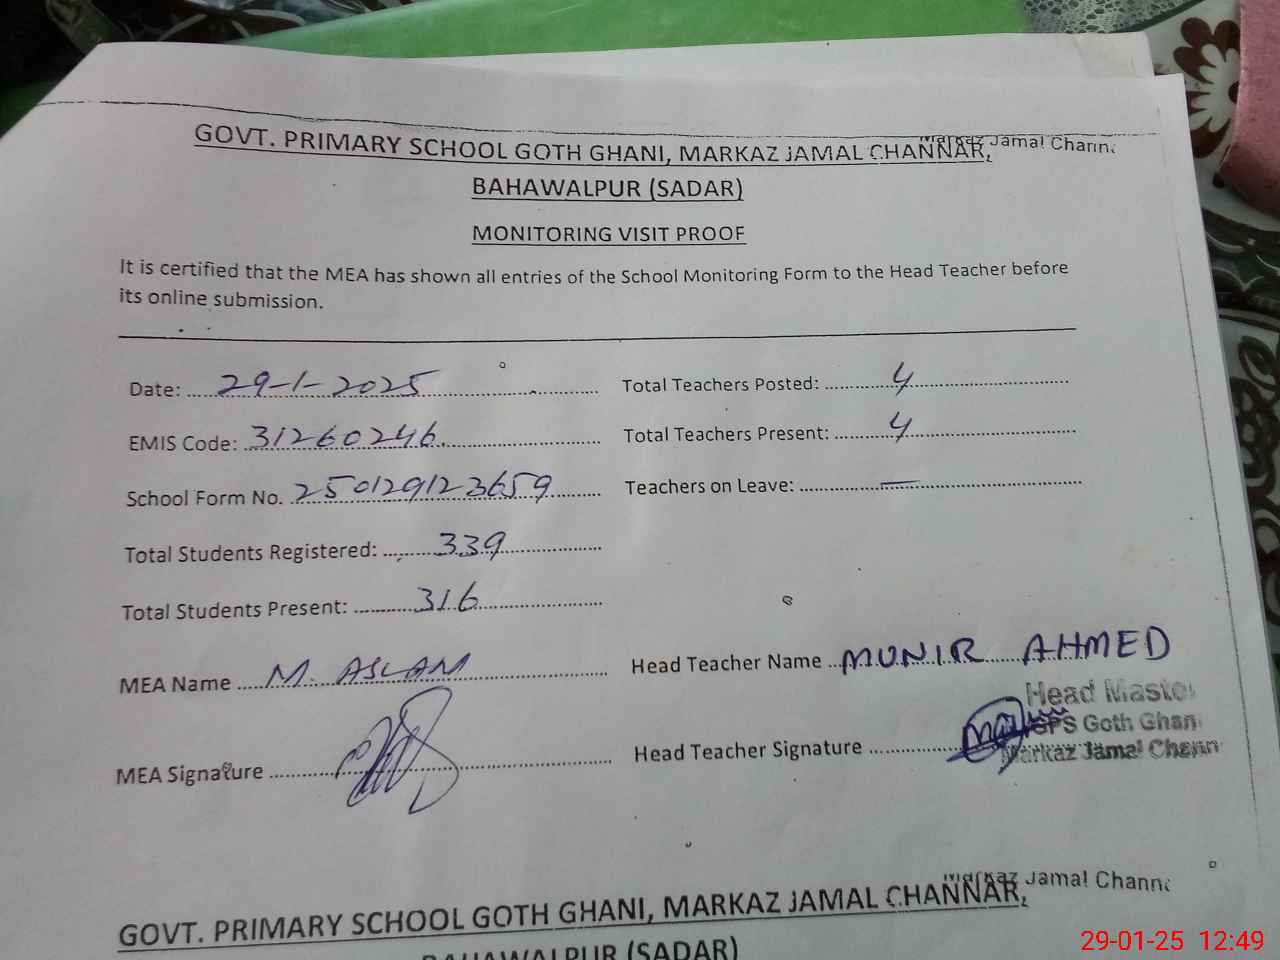 GOVT. PRIMARY SCHOOL GOTH GHANI, MARKAZ JAMAL CHANNAR,
Markaz Jamal Channa
BAHAWALPUR (SADAR)
MONITORING VISIT PROOF
It is certified that the MEA has shown all entries of the School Monitoring Form to the Head Teacher before
its online submission.
Date: 29-1-2025 Total Teachers Posted: 4
EMIS Code: 31260246 Total Teachers Present: 4
School Form No. 250129123659 Teachers on Leave: —
Total Students Registered: 339
Total Students Present: 316
MEA Name M. ASLAM Head Teacher Name MUNIR AHMED
Head Master
GPS Goth Ghani
Markaz Jamal Chann
MEA Signature Head Teacher Signature
Markaz Jamal Channa
GOVT. PRIMARY SCHOOL GOTH GHANI, MARKAZ JAMAL CHANNAR,
BAHAWALPUR (SADAR)
29-01-25 12:49